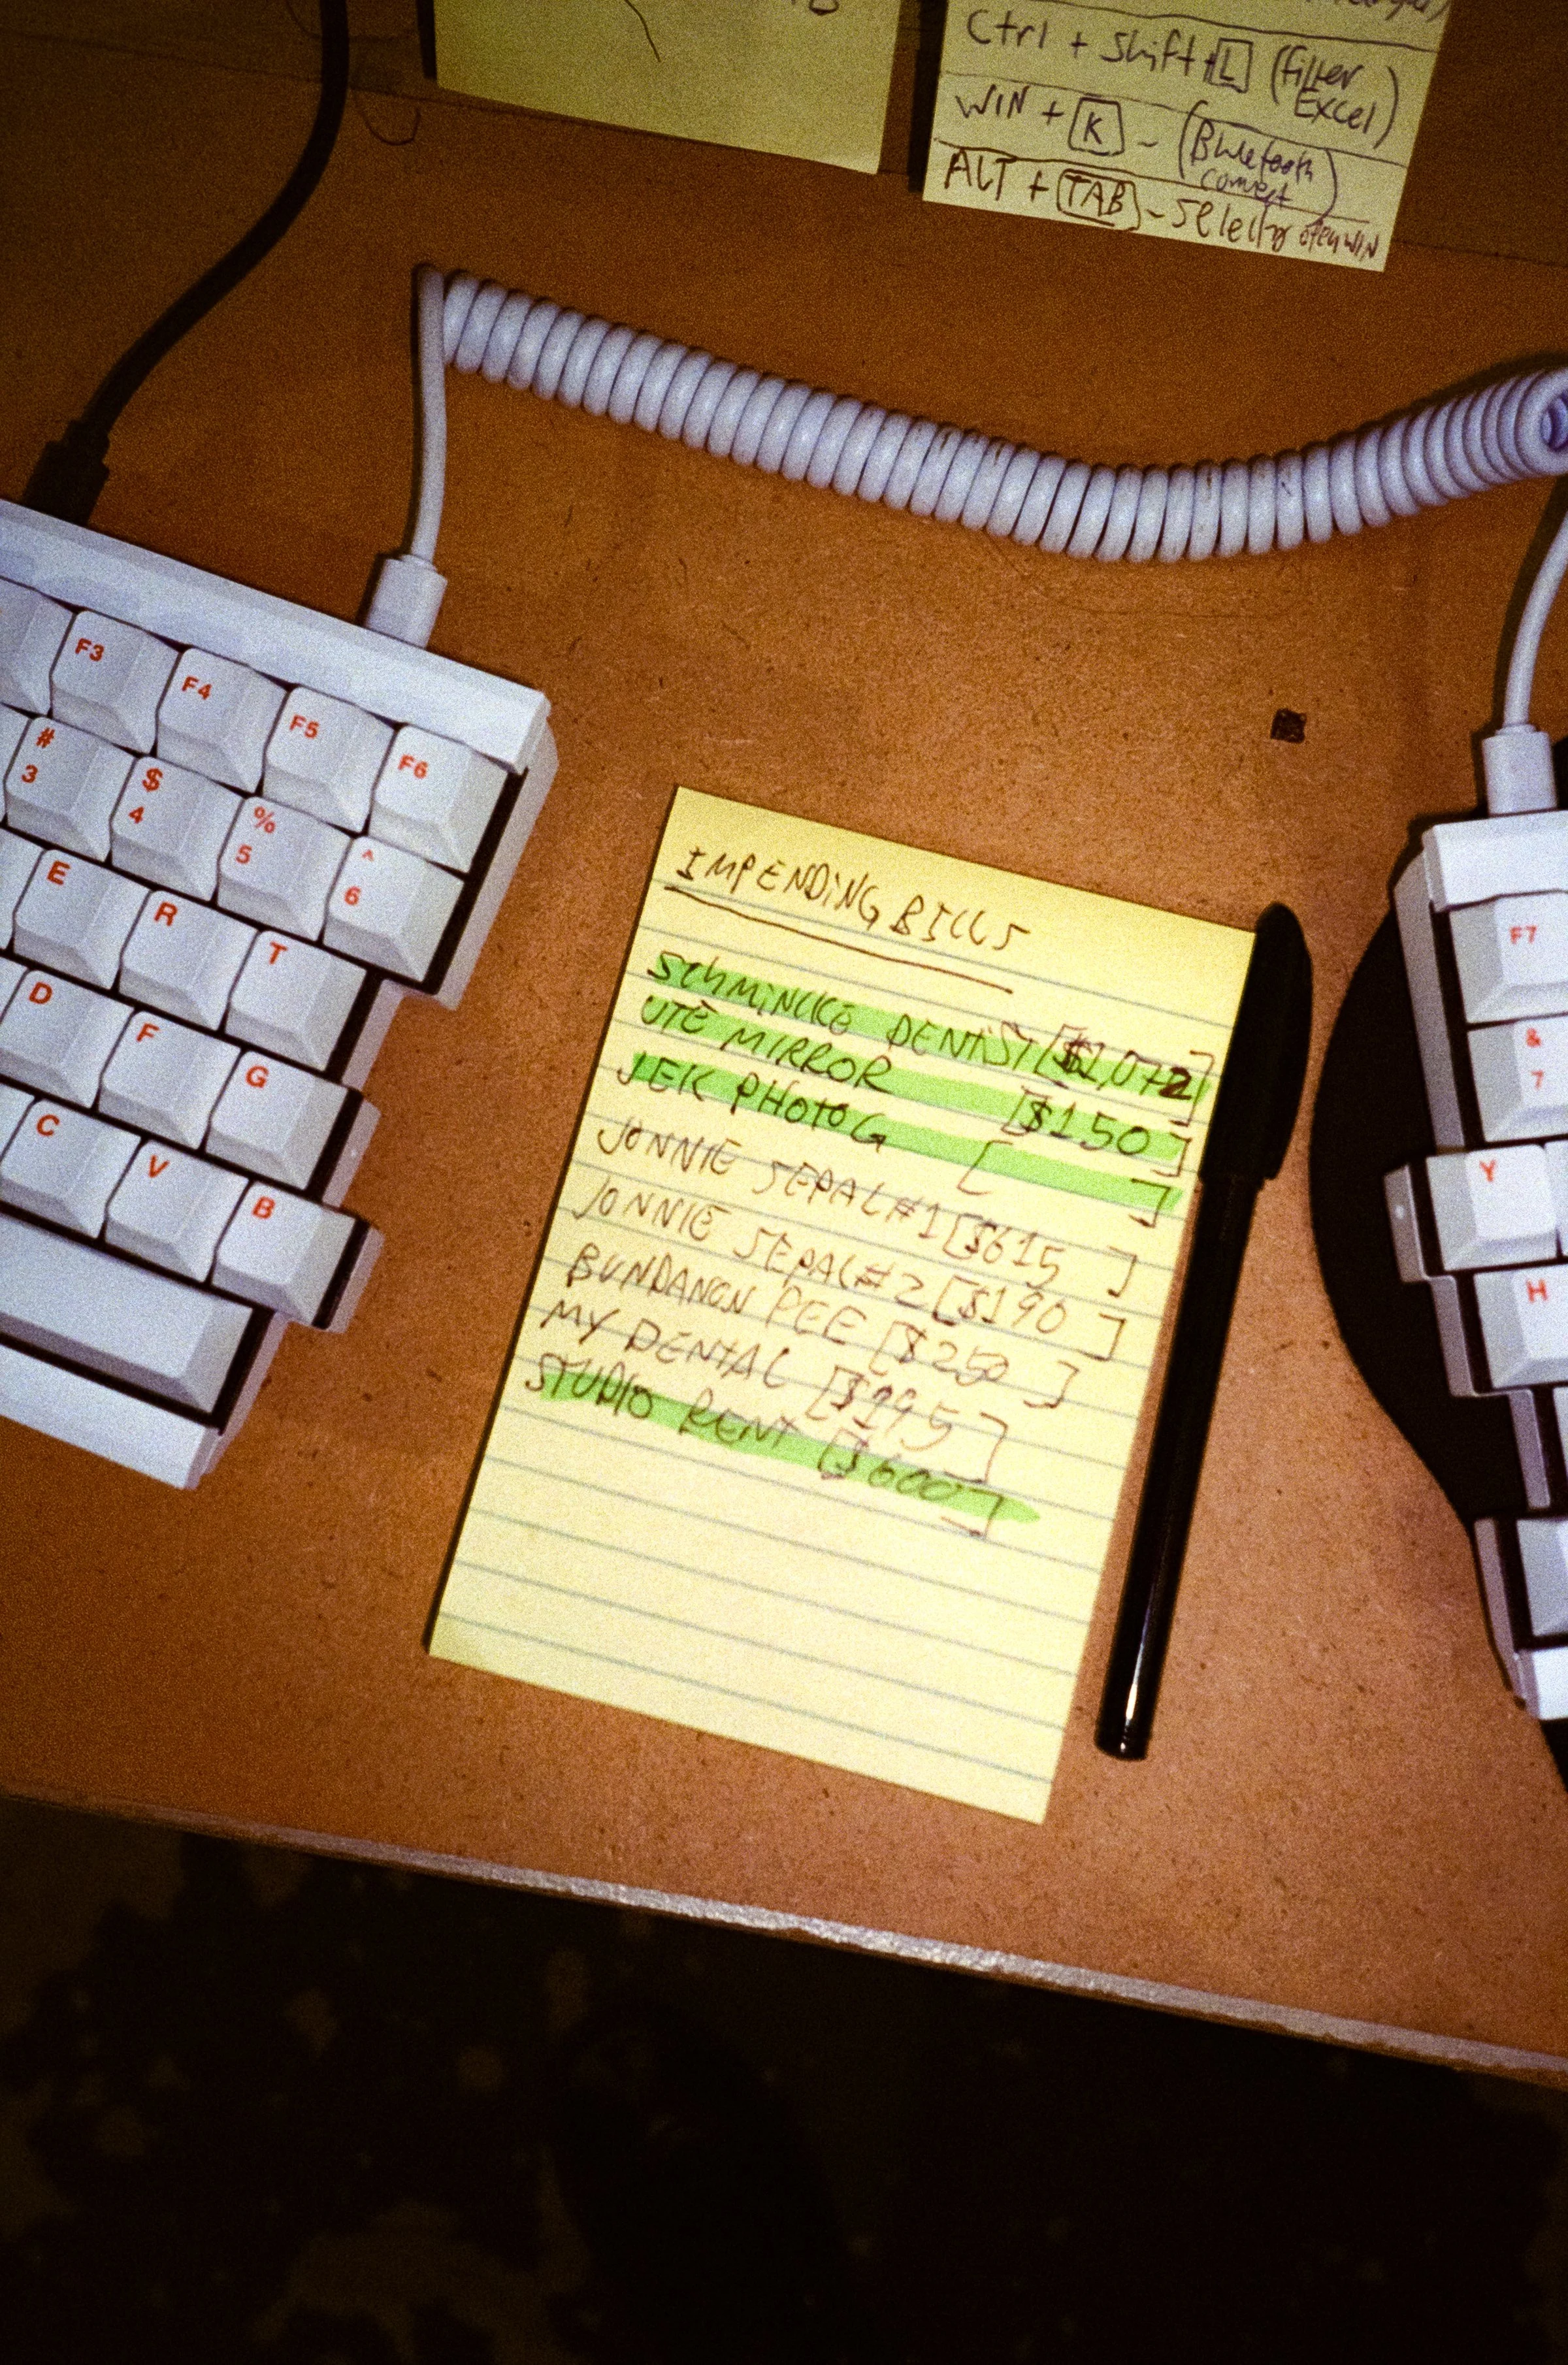 Ctrl + Shift + L (Filter Excel)
WIN + K - (Bluetooth connect)
ALT + TAB - Selecting open WIN
F3
F4
F5
F6
# 3
$ 4
% 5
^ 6
E
R
T
D
F
G
C
V
B
IMPENDING BILLS
SCHMINCKE DENTIST [$1,072]
UTE MIRROR [$150]
JEK PHOTOG [ ]
JONNIE SEPAL #1 [$615 ]
JONNIE SEPAL #2 [$190 ]
BUNDANON PEE [$250 ]
MY DENTAL [$995 ]
STUDIO RENT [$600 ]
F7
& 7
Y
H